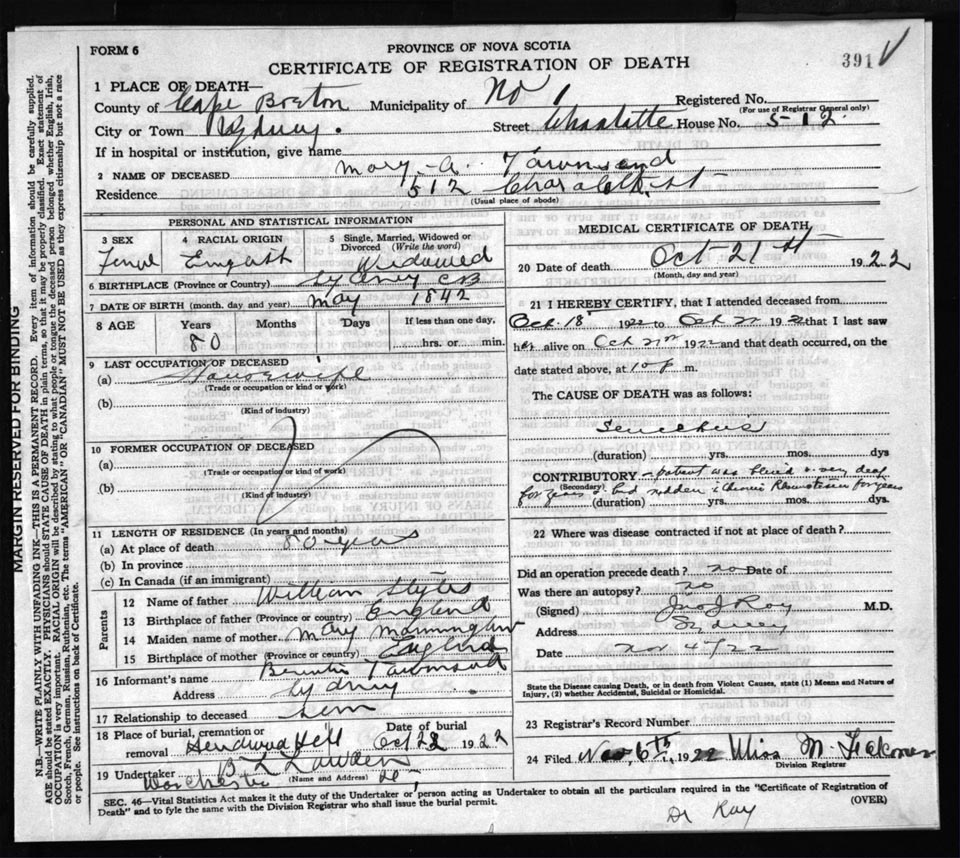 FORM 6
PROVINCE OF NOVA SCOTIA
CERTIFICATE OF REGISTRATION OF DEATH
391
1 PLACE OF DEATH—
County of Cape Breton Municipality of No 1 Registered No.
(For use of Registrar General only)
City or Town Sydney. Street Charlotte House No. 512.
If in hospital or institution, give name
2 NAME OF DECEASED Mary A. Townsend
Residence 512 Charlotte St
(Usual place of abode)
PERSONAL AND STATISTICAL INFORMATION
3 SEX 4 RACIAL ORIGIN 5 Single, Married, Widowed or Divorced (Write the word)
Widowed
6 BIRTHPLACE (Province or Country) Sydney CB
7 DATE OF BIRTH (month, day and year) May 1842
8 AGE Years Months Days If less than one day,
80 hrs. or min.
9 LAST OCCUPATION OF DECEASED
(a) Housewife
(Trade or occupation or kind of work)
(b)
(Kind of industry)
10 FORMER OCCUPATION OF DECEASED
(a)
(Trade or occupation or kind of work)
(b)
(Kind of industry)
11 LENGTH OF RESIDENCE (In years and months)
(a) At place of death 80 years
(b) In province
(c) In Canada (if an immigrant)
Parents
12 Name of father William
13 Birthplace of father (Province or country) England
14 Maiden name of mother Mary
15 Birthplace of mother (Province or country) England
16 Informant's name Townsend
Address Sydney
17 Relationship to deceased
18 Place of burial, cremation or removal Hill Date of burial Oct 1922
19 Undertaker
(Name and Address)
MEDICAL CERTIFICATE OF DEATH
20 Date of death Oct 21st 1922
(Month, day and year)
21 I HEREBY CERTIFY, that I attended deceased from
Oct 18 1922 to Oct that I last saw
her alive on Oct 1922 and that death occurred, on the
date stated above, at m.
The CAUSE OF DEATH was as follows:
(duration) yrs. mos. dys
CONTRIBUTORY patient was blind & very deaf
(Secondary)
for years
(duration) yrs. mos. dys.
22 Where was disease contracted if not at place of death?
Did an operation precede death? no Date of
Was there an autopsy? no
(Signed) Roy M.D.
Address Sydney
Date Nov 4/22
State the Disease causing Death, or in death from Violent Causes, state (1) Means and Nature of Injury, (2) whether Accidental, Suicidal or Homicidal.
23 Registrar's Record Number
24 Filed Nov. 6th, 1922 Miss M.
Division Registrar
SEC. 46—Vital Statistics Act makes it the duty of the Undertaker or person acting as Undertaker to obtain all the particulars required in the "Certificate of Registration of
Death" and to fyle the same with the Division Registrar who shall issue the burial permit. (OVER)
Dr Roy
MARGIN RESERVED FOR BINDING
N.B.—WRITE PLAINLY WITH UNFADING INK—THIS IS A PERMANENT RECORD. Every item of information should be carefully supplied.
AGE should be stated EXACTLY. PHYSICIANS should STATE CAUSE OF DEATH in plain terms, so that it may be properly classified. Exact statement of
OCCUPATION is very important. RACIAL ORIGIN will be described by stating to what people or tongue the deceased person belonged whether English, Irish,
Scotch, French, German, Russian, Ruthenian, etc. The terms "AMERICAN" OR "CANADIAN" MUST NOT BE USED as they express citizenship but not a race
or people. See instructions on back of Certificate.